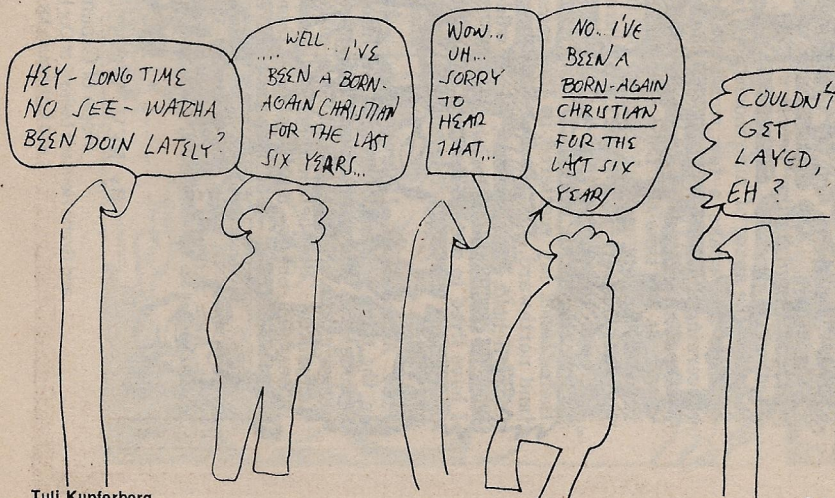 HEY - LONG TIME
NO SEE - WATCHA
BEEN DOIN LATELY?
.... WELL.. I'VE
BEEN A BORN-
AGAIN CHRISTIAN
FOR THE LAST
SIX YEARS...
WOW...
UH...
SORRY
TO
HEAR
THAT...
NO.. I'VE
BEEN A
BORN-AGAIN
CHRISTIAN
FOR THE
LAST SIX
YEARS
COULDN'T
GET
LAYED,
EH?
Tuli Kupferberg